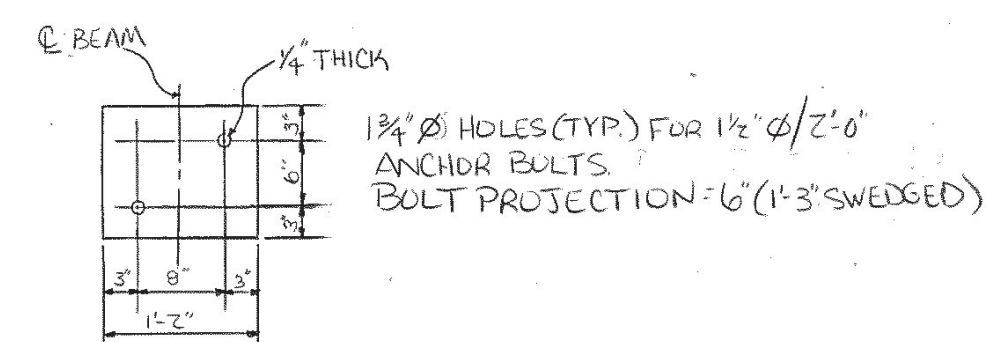 ℄ BEAM
1/4" THICK
1 3/4" Ø HOLES (TYP.) FOR 1 1/2" Ø/2'-0"
ANCHOR BOLTS.
BOLT PROJECTION = 6" (1'-3" SWEDGED)
3"
6"
3"
3" 8" 3"
1'-2"